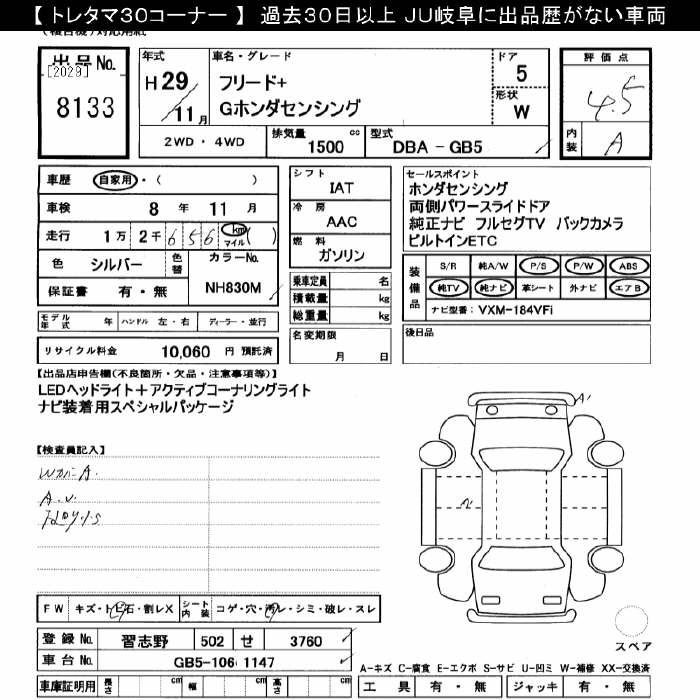 【 トレタマ30コーナー 】 過去30日以上 JU岐阜に出品歴がない車両
出品No.
[2029]
8133
年式
H 29
11 月
車名・グレード
フリード+
Gホンダセンシング
ドア
5
形状
W
評価点
4.5
内装
A
2WD・4WD
排気量
1500 cc
型式
DBA - GB5
車歴 自家用・( )
車検 8 年 11 月
走行 1万 2千 6 5 6 km マイル ( )
色 シルバー 色替 カラーNo.
保証書 有・無 NH830M
モデル年式 年 ハンドル 左・右 ディーラー・並行
リサイクル料金 10,060 円 預託済
シフト
IAT
冷房
AAC
燃料
ガソリン
乗車定員 名
積載量 kg
総重量 kg
名変期限
月 日
セールスポイント
ホンダセンシング
両側パワースライドドア
純正ナビ フルセグTV バックカメラ
ビルトインETC
装備品
S/R 純A/W P/S P/W ABS
純TV 純ナビ 革シート 外ナビ エアB
ナビ型番: VXM-184VFi
後日品
【出品店申告欄(不良箇所・欠品・注意事項等)】
LEDヘッドライト+アクティブコーナリングライト
ナビ装着用スペシャルパッケージ
【検査員記入】
A
A
FW キズ・トビ石・割レX シート内装 コゲ・穴・汚レ・シミ・破レ・スレ
登録No. 習志野 502 せ 3760
車台No. GB5-106 1147
車庫証明用 長さ cm 幅 cm 高さ cm
スペア
A-キズ C-腐食 E-エクボ S-サビ U-凹ミ W-補修 XX-交換済
工具 有・無 ジャッキ 有・無